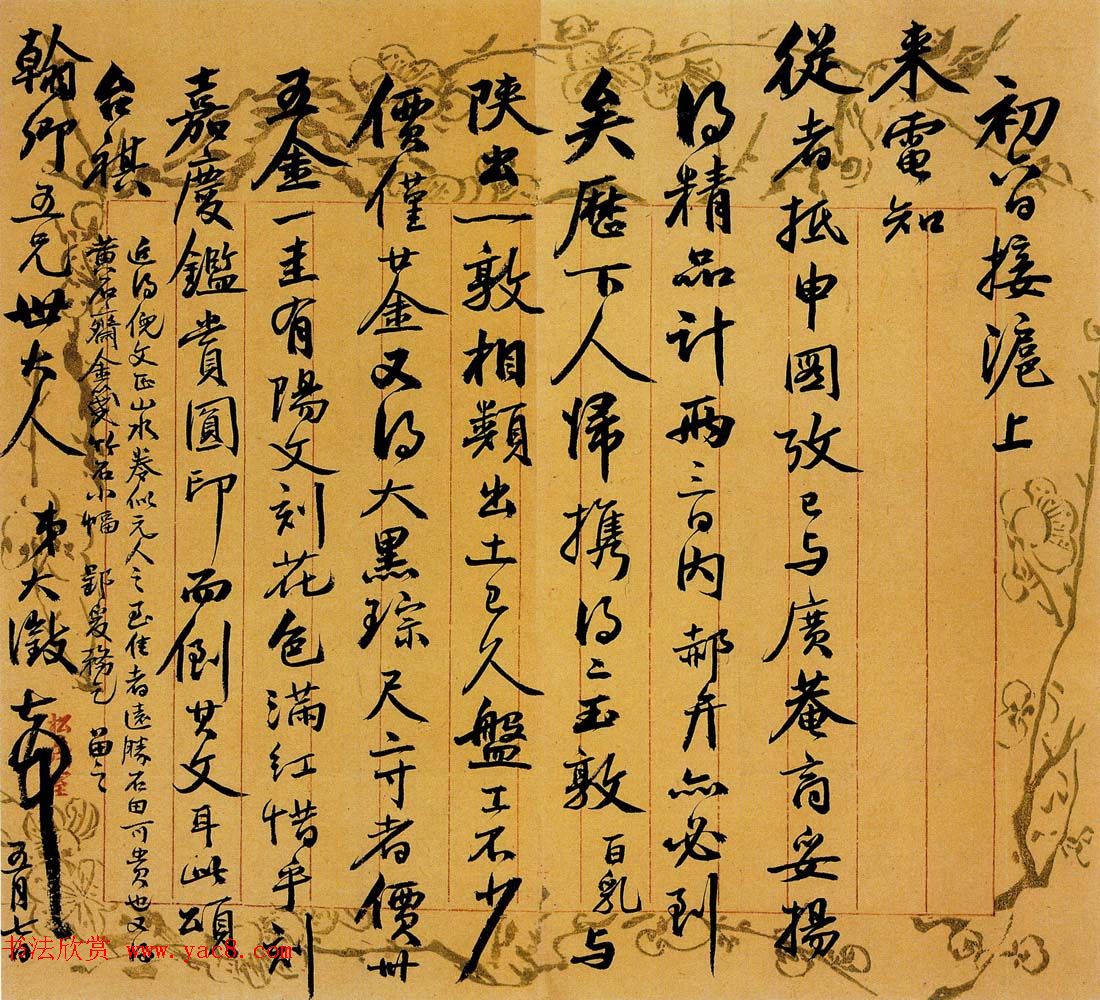 初六日接滬上
来電知
從者抵申圖攷已与廣菴商妥揚
得精品計兩三日内郝弁亦必到
矣歷下人歸攜得二玉敦百乳与
陝出一敦相類出土已久盤工不少
價僅廿金又得大黑琮尺六寸者價卅
五金一圭有陽文刻花色滿紅惜乎刻
嘉慶鑑賞圓印而倒其文耳此頌
台祺
近得倪文正山水卷似元人之至佳者遠勝石田可貴也又
黄石齋金箋竹石小幅
翰卿五兄世大人 弟大澂
五月七日
书法欣赏 www.yac8.com